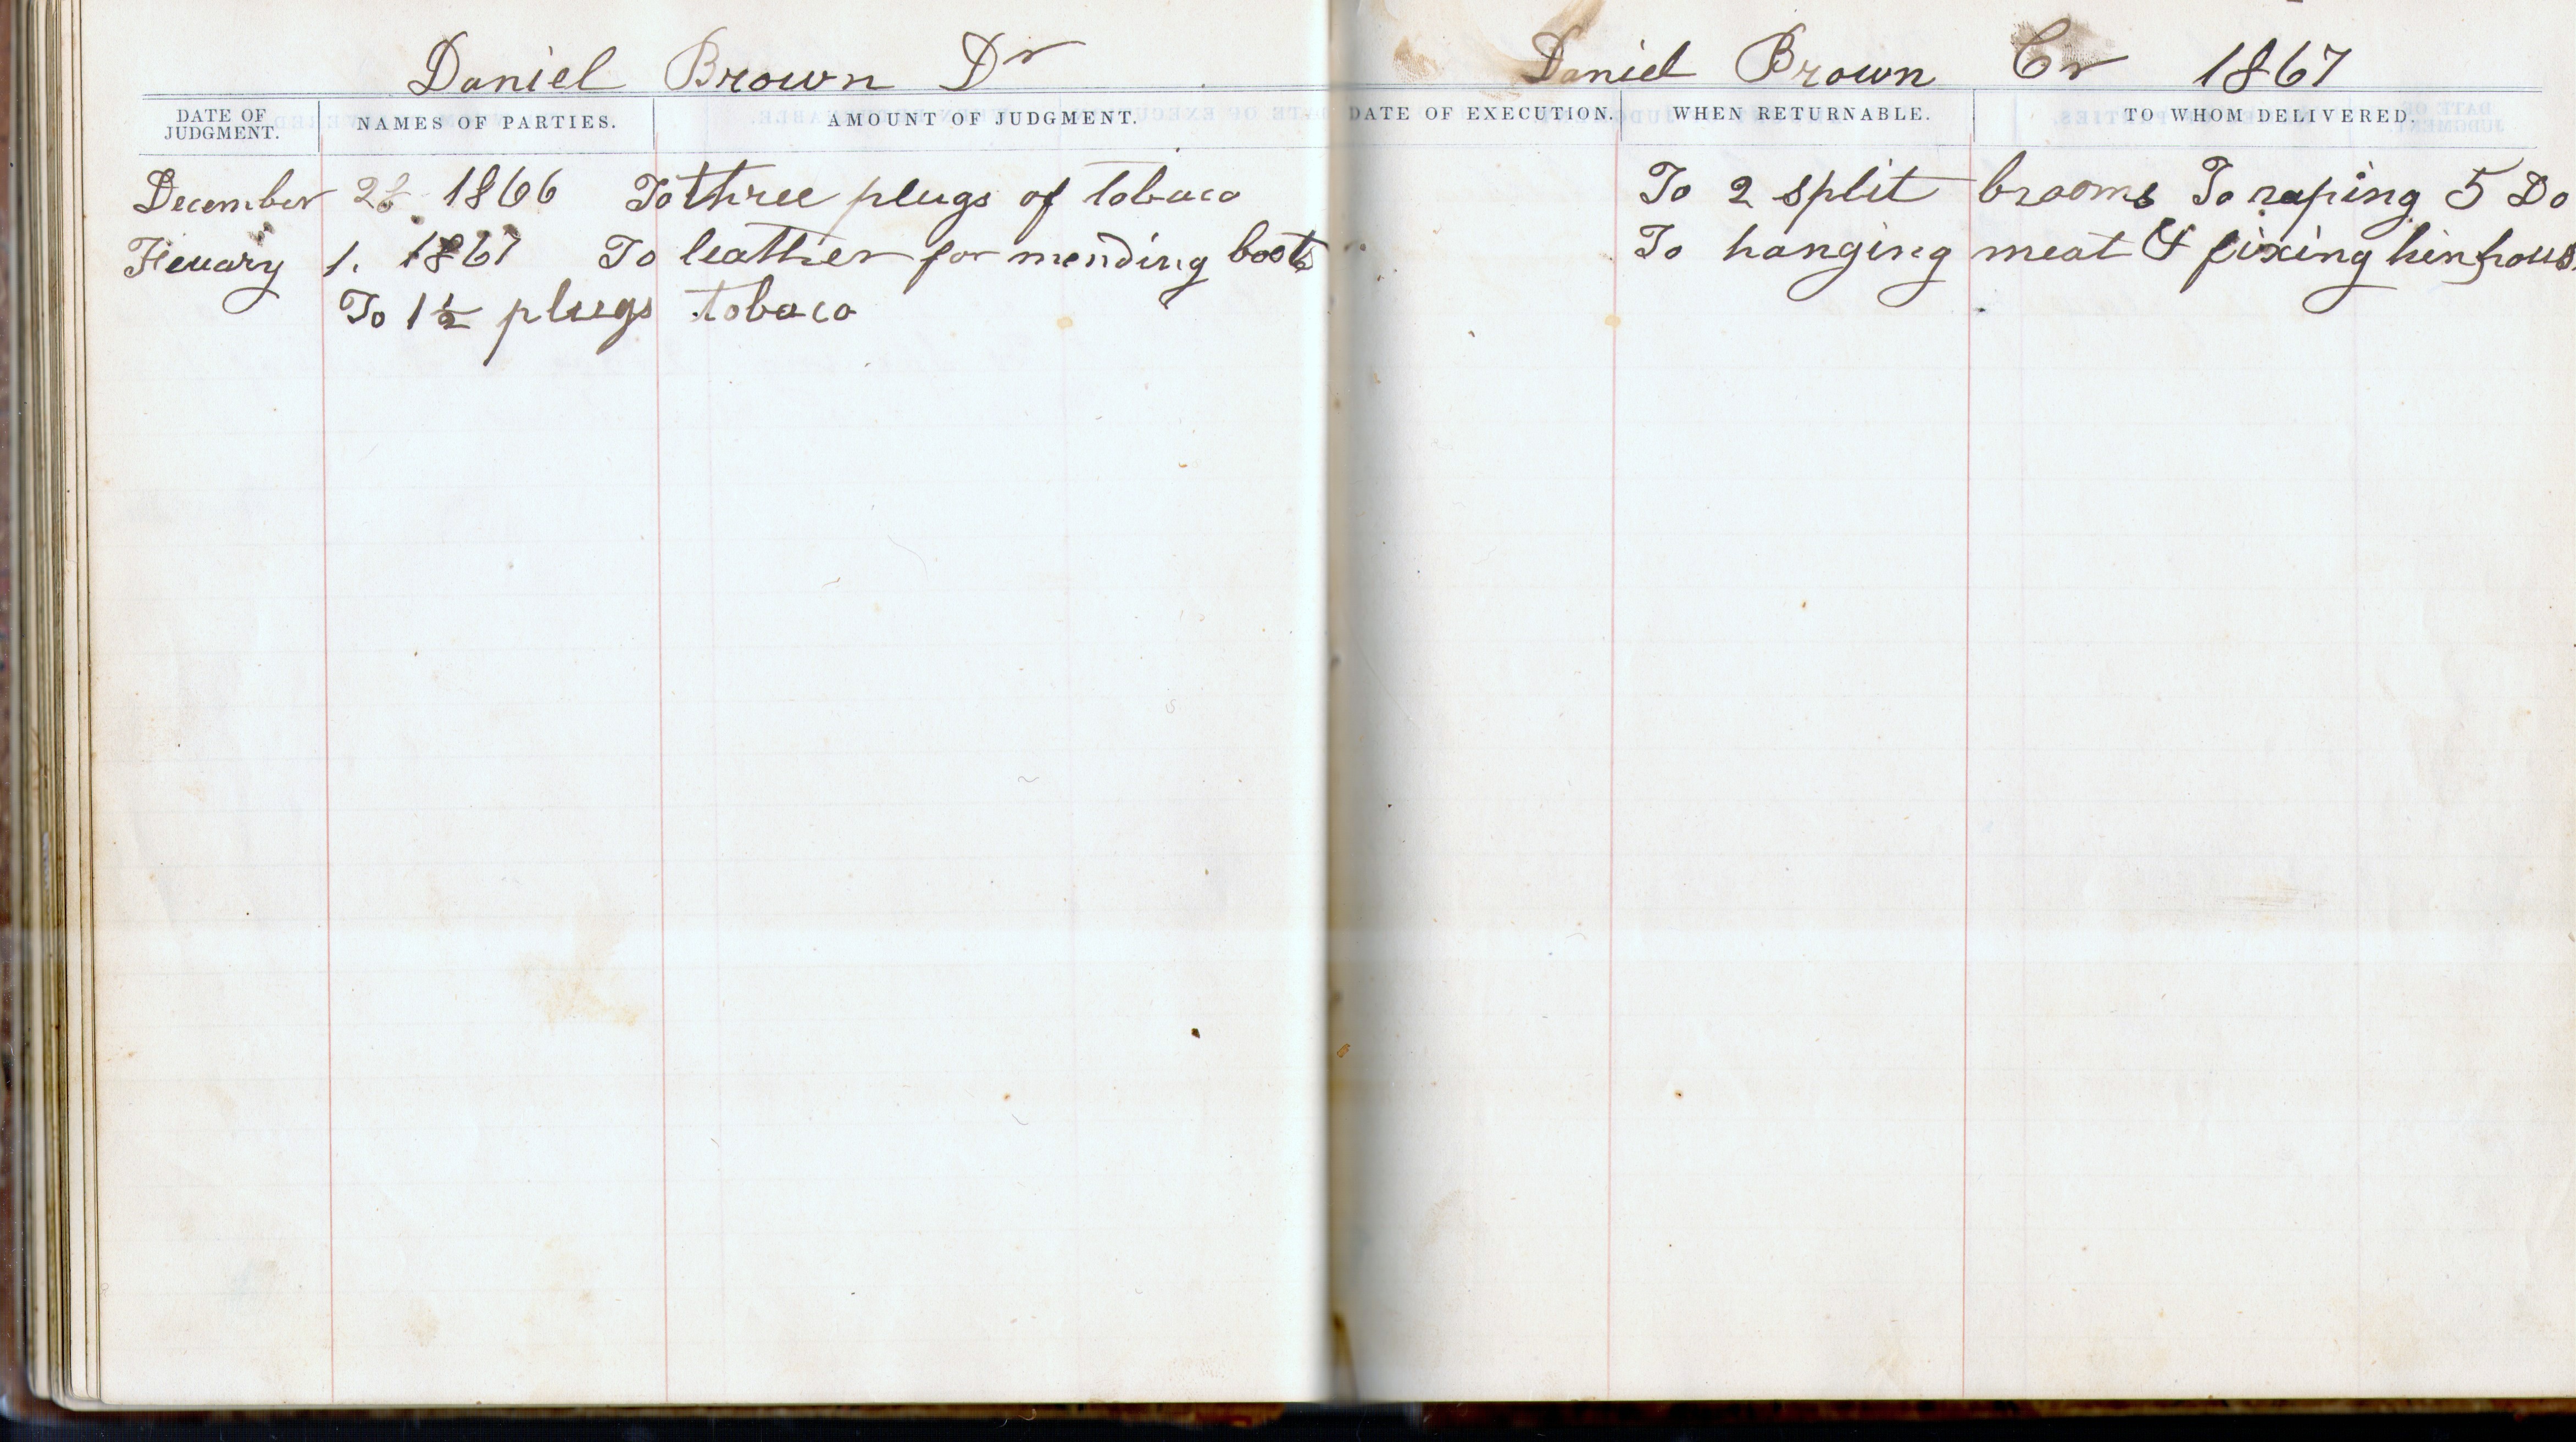 Daniel Brown Dr
DATE OF JUDGMENT. NAMES OF PARTIES. AMOUNT OF JUDGMENT.
December 1866 To three plugs of tobaco
1. 1867 To leather for mending boots
To 1½ plugs tobaco
Daniel Brown Cr 1867
DATE OF EXECUTION. WHEN RETURNABLE. TO WHOM DELIVERED.
To 2 split brooms To raping 5 Do
To hanging meat & fixing hinhous